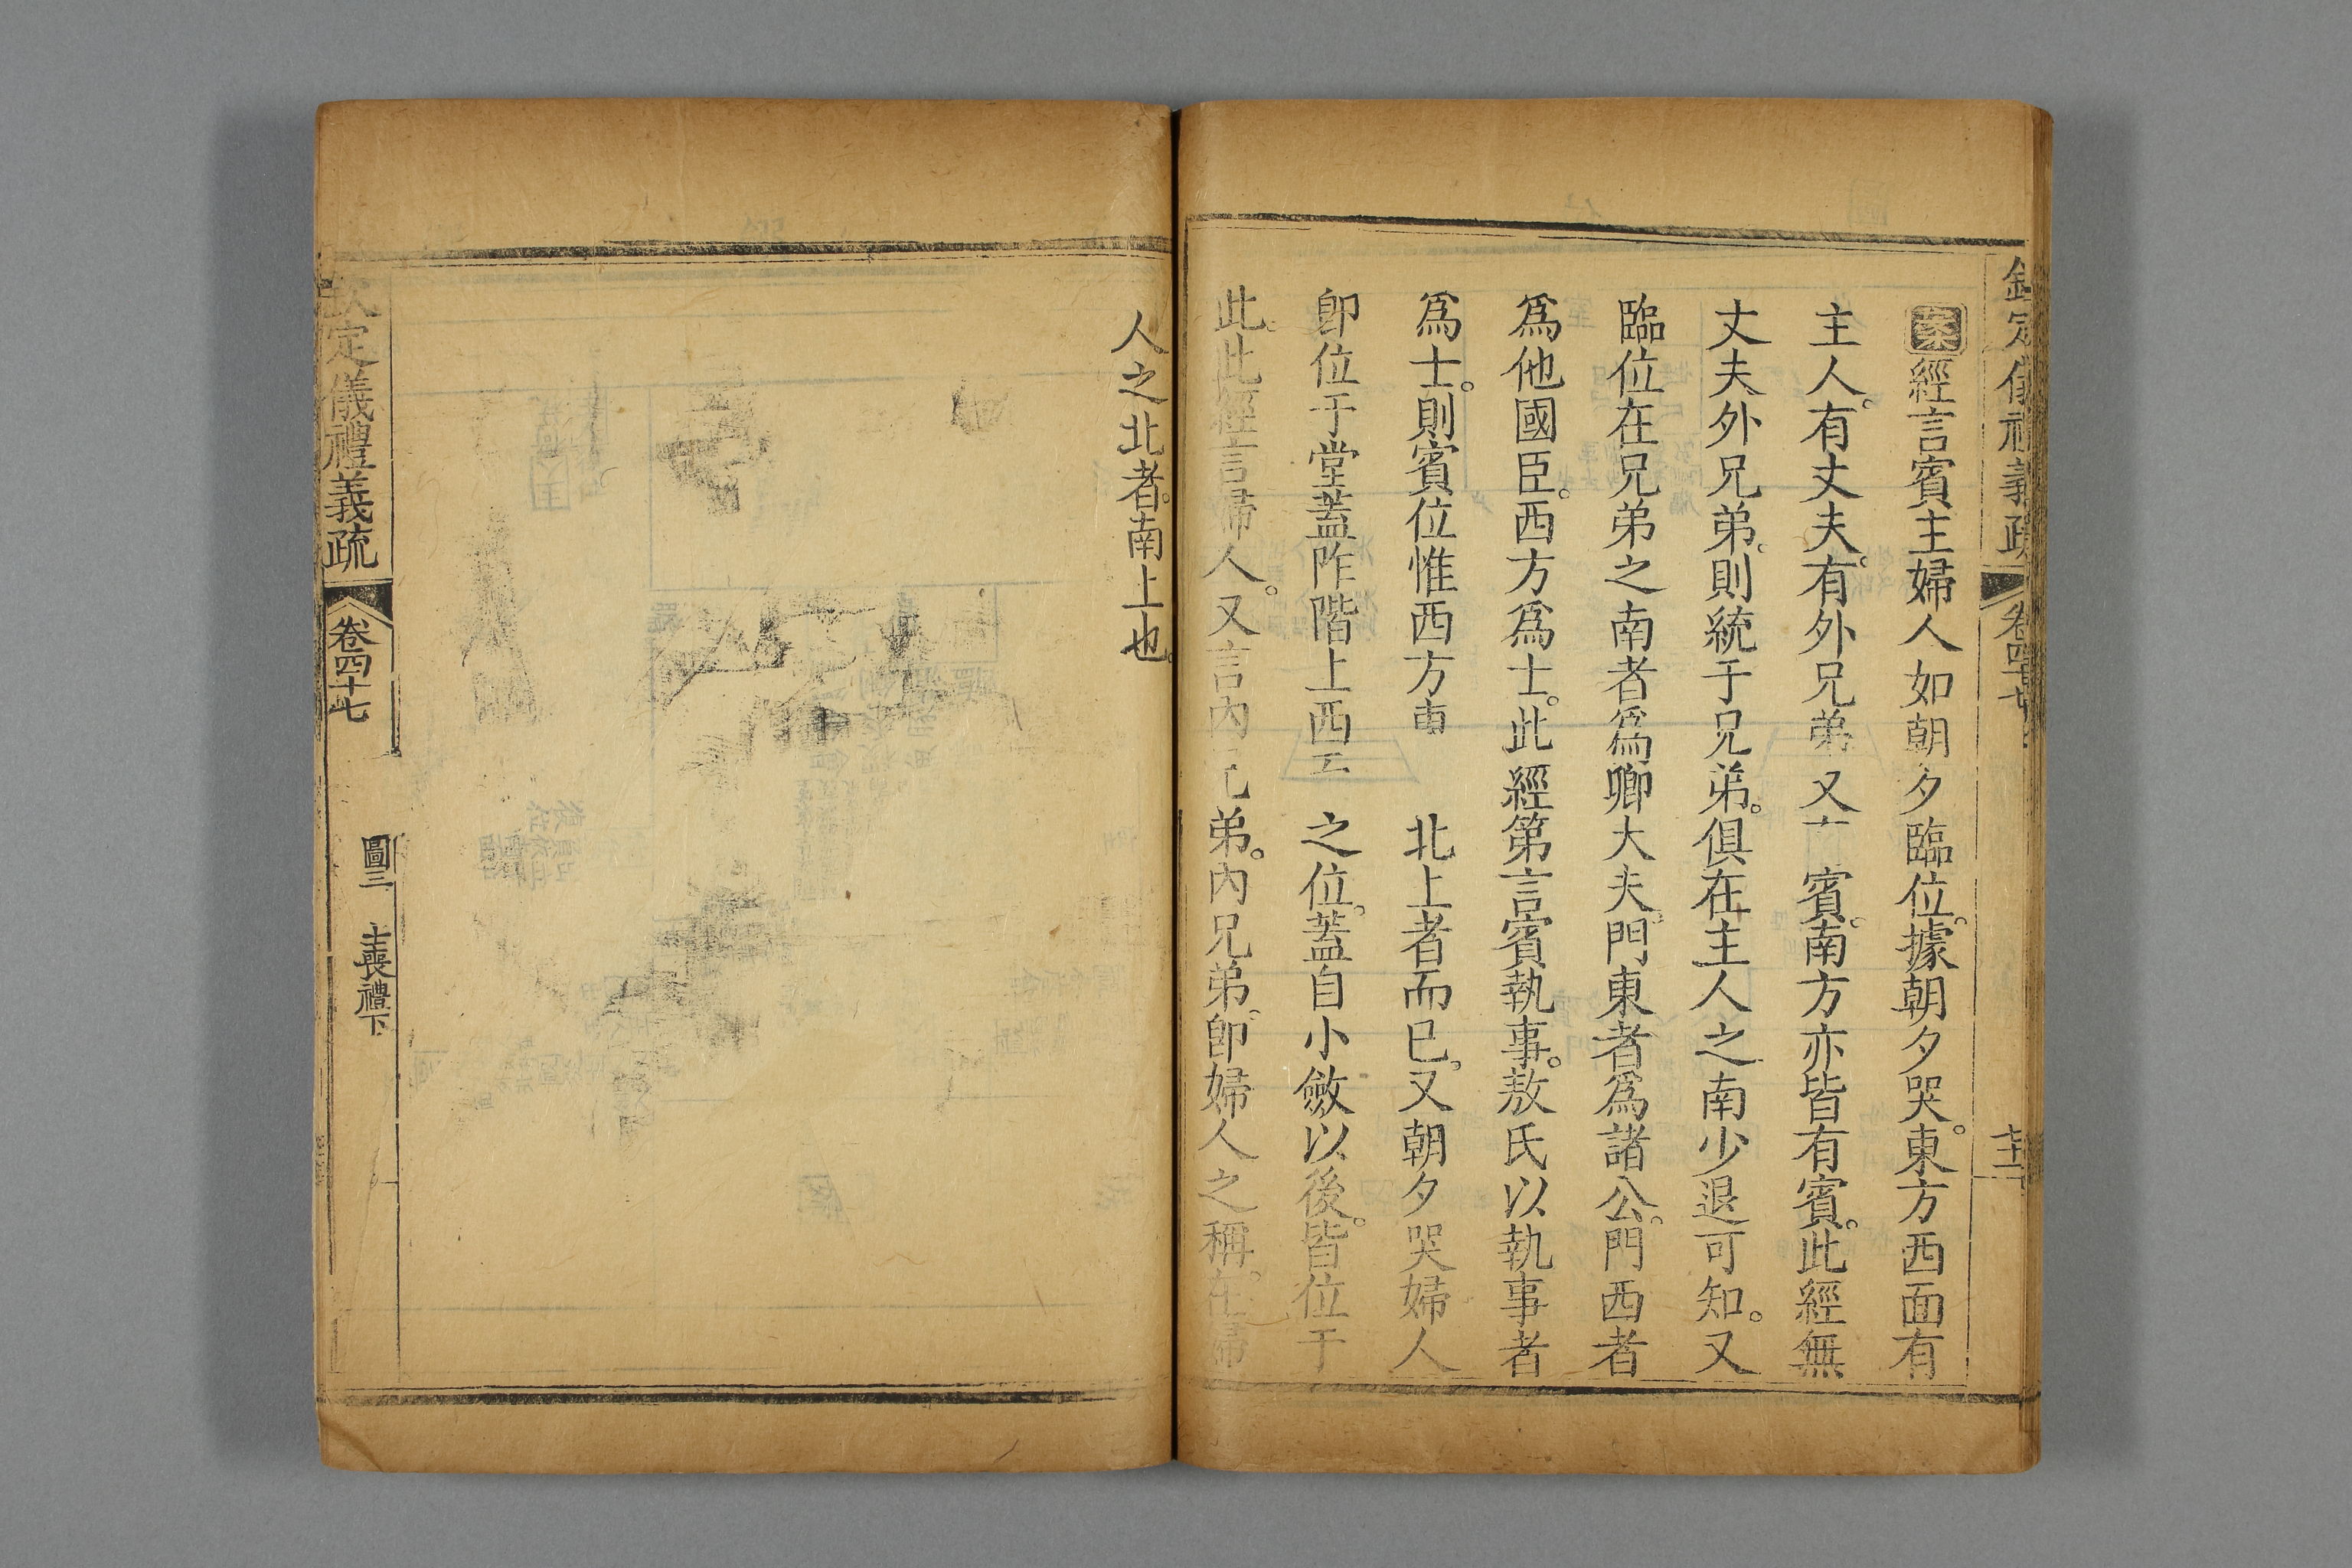 欽定儀禮義疏 卷四十七
案經言賓主婦人如朝夕臨位。據朝夕哭。東方西面有
主人。有丈夫。有外兄弟又 賓。南方亦皆有賓。此經無
丈夫外兄弟。則統于兄弟。俱在主人之南少退可知。又
臨位在兄弟之南者爲卿大夫。門東者爲諸公。門西者
爲他國臣。西方爲士。此經第言賓執事。敖氏以執事者
爲士。則賓位惟西方 北上者而已。又朝夕哭婦人
卽位于堂蓋阼階上西 之位。蓋自小斂以後。皆位于
此。此經言婦人。又言內兄弟。內兄弟。卽婦人之稱。在婦
人之北者。南上也。
欽定儀禮義疏 卷四十七 圖三 士喪禮下